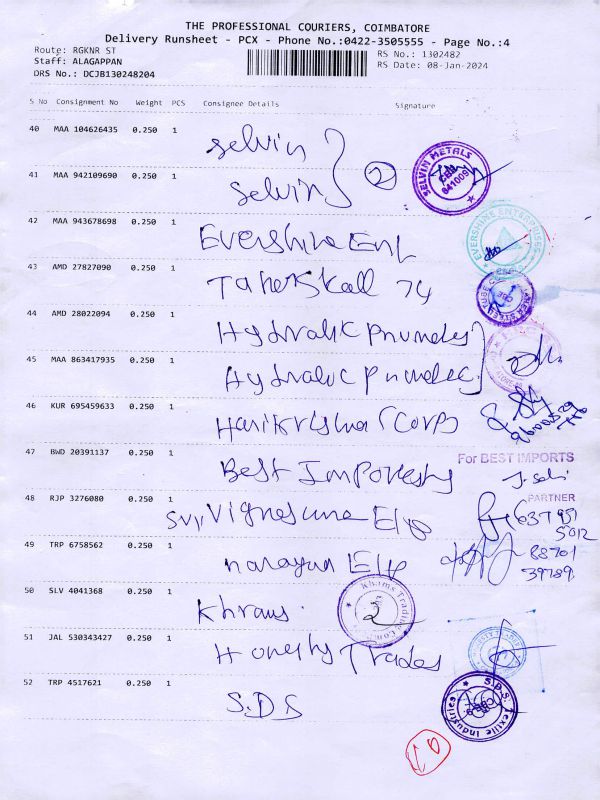 THE PROFESSIONAL COURIERS, COIMBATORE
Delivery Runsheet - PCX - Phone No.:0422-3505555 - Page No.:4
Route: RGKNR ST
RS No.: 1302482
Staff: ALAGAPPAN
RS Date: 08-Jan-2024
DRS No.: DCJB130248204
S No Consignment No Weight PCS Consignee Details Signature
40 MAA 104626435 0.250 1 Selvin
SELVIN METALS 641009
41 MAA 942109690 0.250 1 Selvin 2
42 MAA 943678698 0.250 1 Evershine Ent
EVERSHINE ENTERPRISES
43 AMD 27827090 0.250 1 74
44 AMD 28022094 0.250 1
45 MAA 863417935 0.250 1
46 KUR 695459633 0.250 1 Harikrishna Corp
47 BWD 20391137 0.250 1 Best
For BEST IMPORTS
PARTNER
48 RJP 3276080 0.250 1 637951
5012
49 TRP 6758562 0.250 1 narayan
88701
39789
50 SLV 4041368 0.250 1
Khams Trading Company
2
51 JAL 530343427 0.250 1 Honesty Trades
52 TRP 4517621 0.250 1 S.D.S
S.D.S. Textile Industries
10